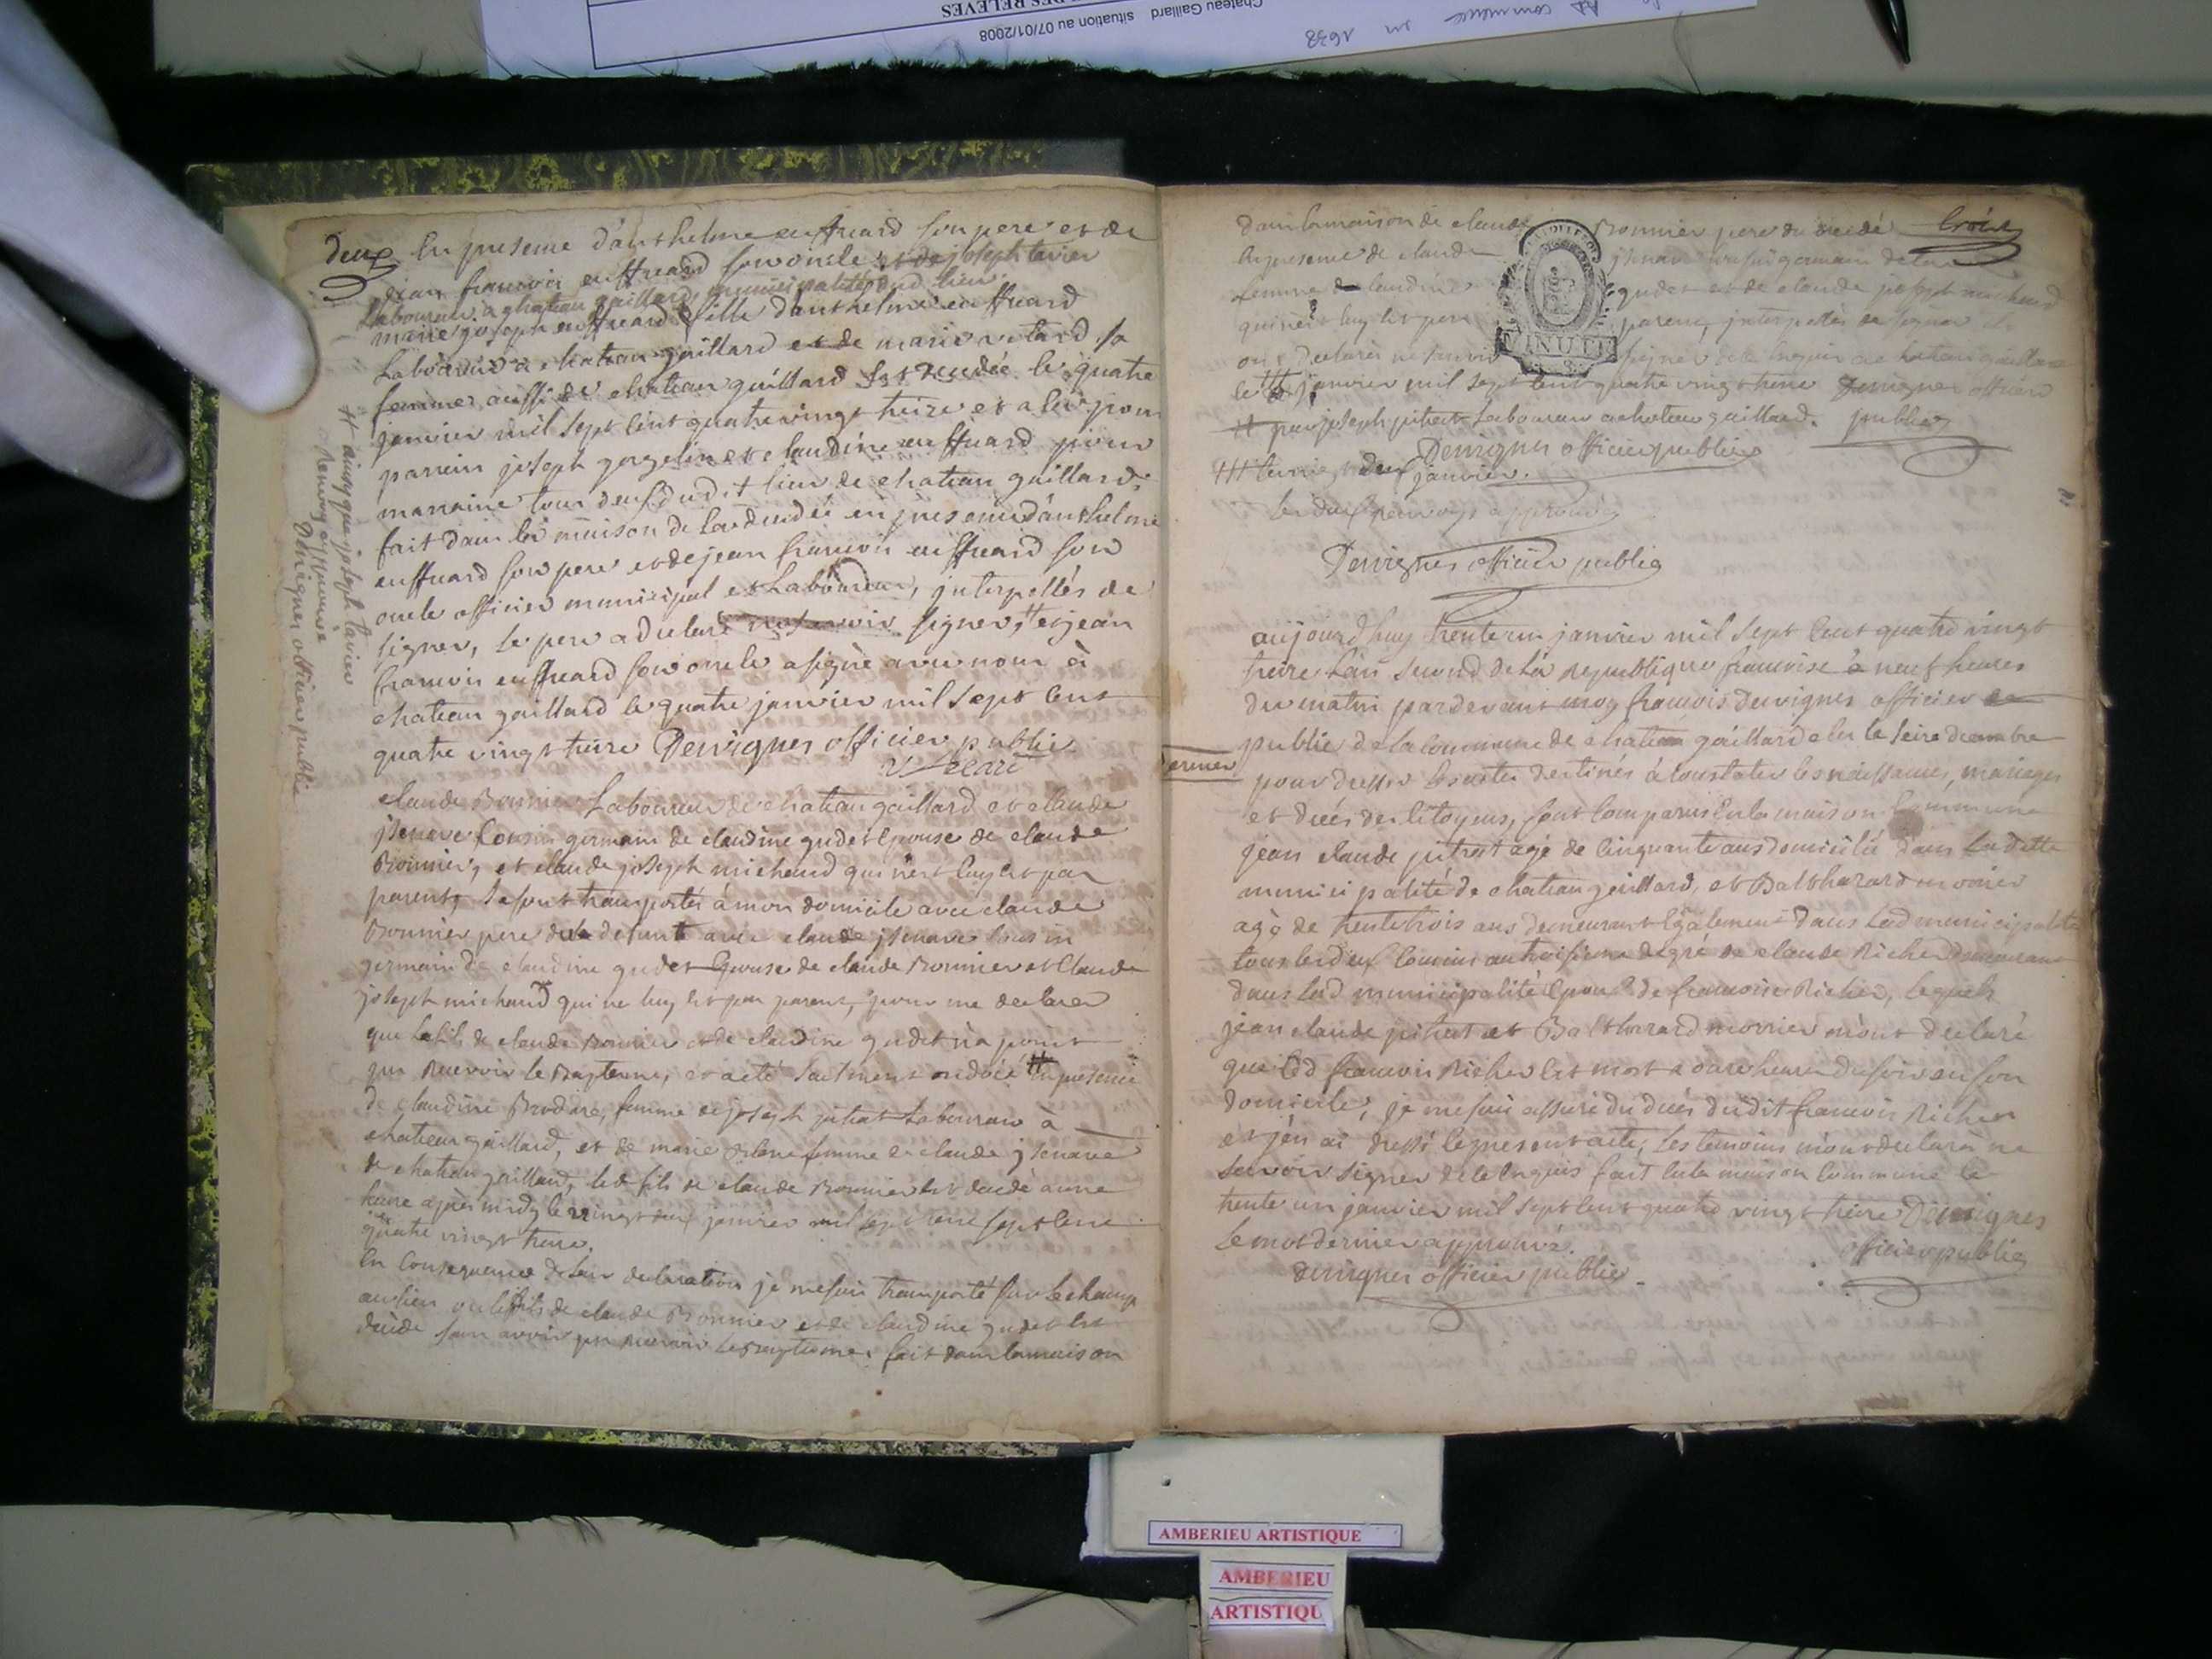 DES RELEVES
Chateau Gaillard situation au 07/01/2008
commence en 1638
deux En presence d'anthelme euffrard son pere et de
jean francois euffrard son oncle et de joseph tavier
Laboureur a chateau gaillard, municipalité dud lieu
marie joseph euffrard fille d'anthelme euffrard
Laboureur a chateau gaillard et de marie velard sa
femme aussi de chateau gaillard Est decedée le quatre
janvier mil sept cent quatre vingt treize et a eu pour
parrain joseph gorgelin et claudine euffrard pour
marraine tous deux dudit lieu de chateau gaillard,
fait dans la maison de la decedée en presence d'anthelme
euffrard son pere et de jean francois euffrard son
oncle officier municipal et Laboureur, interpellés de
signer, le pere a declaré ne savoir signer, # et jean
francois euffrard son oncle a signé avec nous à
chateau gaillard le quatre janvier mil sept cent
quatre vingt treize Dervignes officier public
# ainsy que joseph tavier
Renvoy approuvé
Dervignes officier public
claude Bonnier Laboureur de chateau gaillard et claude
jsenave Cousin germain de claudine gudet Epouse de claude
Bonnier, et claude joseph michaud qui n'est luy est pas
parent, se sont transportés à mon domicile avec claude
Bonnier pere du defunt avec claude jsenave cousin
germain de claudine gudet Epouse de claude Bonnier et Claude
joseph michaud qui ne luy est pas parent, pour me declarer
que le fils de claude Bonnier et de claudine gudet n'a point
pu recevoir le Bapteme, et a été seulement ondoié # En presence
de claudine Brodare, femme de joseph pitrat Laboureur à
chateau gaillard, et de marie femme de claude jsenave
de chateau gaillard, led fils de claude Bonnier est decedé à une
heure après midy le vingt deux janvier mil sept cent
quatre vingt treize.
En Consequence de leur declaration je me suis transporté sur le champ
au lieu ou le fils de claude Bonnier et de claudine gudet Est
decedé sans avoir pu recevoir le Bapteme. fait dans la maison
dans la maison de claude Bonnier pere du decedé trois
En presence de claude jsenave cousin germain de la
femme de claudine gudet et de claude joseph michaud
qui n'est luy est pas parent, interpellés de signer ils
ont declaré ne savoir signer de ce Enquis a chateau gaillard
le janvier mil sept cent quatre vingt treize Dervignes officier
# par joseph pitrat Laboureur a chateau gaillard. public
Dervignes officier public
### deux janvier.
les deux renvoys approuvés
Dervignes officier public
MINUTE
aujourd'huy trente un janvier mil sept cent quatre vingt
treize L'an second de La republique francoise à neuf heures
du matin pardevant moy francois Dervignes officier
public de la commune de chateau gaillard elu le seize decembre
dernier
pour dresser les actes destinés à Constater les naissances, mariages
et decés des Citoyens, sont Comparus En la maison Commune
jean claude pitrat agé de Cinquante ans domicilié dans Ladite
municipalité de chateau gaillard, et Balthazard morrier
agé de trente trois ans demeurant Egalement dans Lad municipalité
tous les deux Cousins au troisieme degré de claude Richer demeurant
dans Lad municipalité Epoux de francoise Richer, lesquels
jean claude pitrat et Balthazard morrier m'ont declaré
que led francois Richer Est mort a onze heures du soir en son
domicile, je me suis assuré du decés dudit francois Richer
et j'en ai dressé le present acte, Les temoins m'ont declaré ne
savoir signer de ce Enquis fait En la maison Commune le
trente un janvier mil sept cent quatre vingt treize Dervignes
Le mot dernier approuvé. officier public
Dervignes officier public
AMBERIEU ARTISTIQUE
AMBERIEU
ARTISTIQU